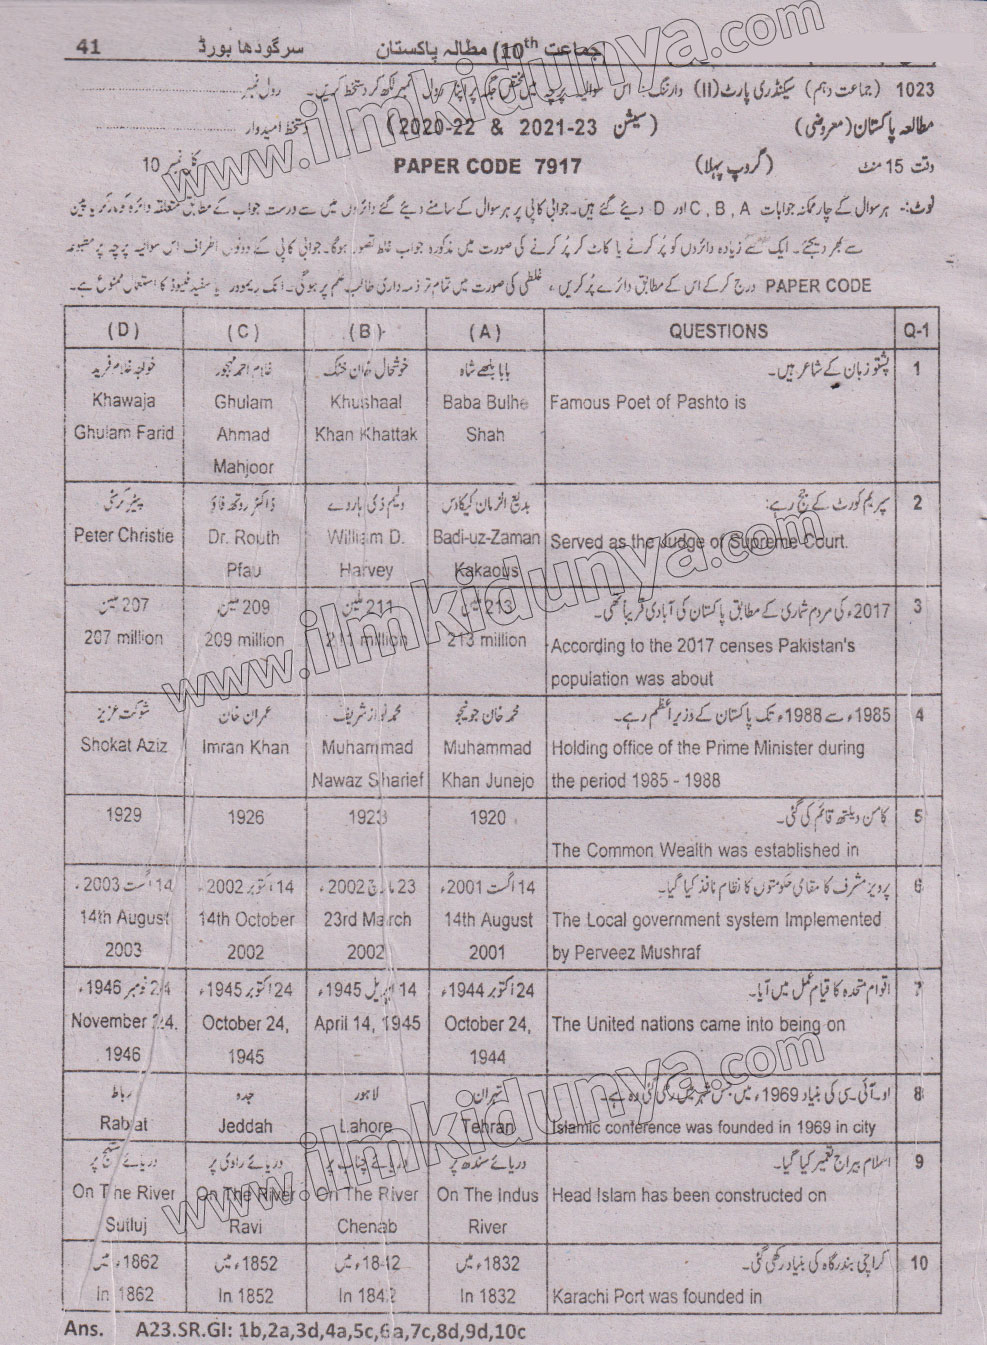 41 سرگودھا بورڈ (جماعت 10th) مطالعہ پاکستان
1023 (جماعت دہم) سیکنڈری پارٹ (II) وارننگ:۔ اس سوالیہ پرچہ میں مختص جگہ پر اپنا رول نمبر لکھ کر دستخط کیجئے۔ رول نمبر
مطالعہ پاکستان (معروضی) (سیشن 2020-22 & 2021-23) دستخط امیدوار
وقت 15 منٹ (گروپ پہلا) PAPER CODE 7917 کل نمبر 10
نوٹ:۔ ہر سوال کے چار ممکنہ جوابات C, B, A اور D دیئے گئے ہیں۔ جوابی کاپی پر ہر سوال کے سامنے دیئے گئے دائروں میں سے درست جواب کے مطابق متعلقہ دائرہ کو مارکر یا پین
سے بھر دیجئے۔ ایک سے زیادہ دائروں کو پُر کرنے یا کاٹ کر پُر کرنے کی صورت میں مذکورہ جواب غلط تصور ہوگا۔ جوابی کاپی کے دونوں اطراف اس سوالیہ پرچہ پر مطبوعہ
PAPER CODE درج کر کے اس کے مطابق دائرے پُر کریں، غلطی کی صورت میں تمام تر ذمہ داری طالب علم پر ہوگی۔ انک ریموور یا سفید فلیوڈ کا استعمال ممنوع ہے۔
(D) (C) (B) (A) QUESTIONS Q-1
خواجہ غلام فرید غلام احمد مہجور خوشحال خان خٹک بابا بلھے شاہ پشتو زبان کے شاعر ہیں۔ 1
Khawaja Ghulam Khushaal Baba Bulhe Famous Poet of Pashto is
Ghulam Farid Ahmad Khan Khattak Shah
Mahjoor
پیٹر کرسٹی ڈاکٹر روتھ فاؤ ولیم ڈی ہاروے بدیع الزمان کیکاؤس سپریم کورٹ کے جج رہے: 2
Peter Christie Dr. Routh William D. Badi-uz-Zaman Served as the Judge of Supreme Court.
Pfau Harvey Kakaous
207 ملین 209 ملین 211 ملین 213 ملین 2017ء کی مردم شماری کے مطابق پاکستان کی آبادی تقریباً تھی۔ 3
207 million 209 million 211 million 213 million According to the 2017 censes Pakistan's
population was about
شوکت عزیز عمران خان محمد نواز شریف محمد خان جونیجو 1985ء سے 1988ء تک پاکستان کے وزیراعظم رہے۔ 4
Shokat Aziz Imran Khan Muhammad Muhammad Holding office of the Prime Minister during
Nawaz Sharief Khan Junejo the period 1985 - 1988
1929 1926 1923 1920 کامن ویلتھ قائم کی گئی۔ 5
The Common Wealth was established in
14 اگست 2003ء 14 اکتوبر 2002ء 23 مارچ 2002ء 14 اگست 2001ء پرویز مشرف کا مقامی حکومتوں کا نظام نافذ کیا گیا۔ 6
14th August 14th October 23rd March 14th August The Local government system Implemented
2003 2002 2002 2001 by Perveez Mushraf
24 نومبر 1946ء 24 اکتوبر 1945ء 14 اپریل 1945ء 24 اکتوبر 1944ء اقوام متحدہ کا قیام عمل میں آیا۔ 7
November 24, October 24, April 14, 1945 October 24, The United nations came into being on
1946 1945 1944
رباط جدہ لاہور تہران او۔آئی۔سی کی بنیاد 1969ء میں جس شہر میں رکھی گئی وہ ہے۔ 8
Rabat Jeddah Lahore Tehran Islamic conference was founded in 1969 in city
دریائے ستلج پر دریائے راوی پر دریائے چناب پر دریائے سندھ پر اسلام بیراج تعمیر کیا گیا۔ 9
On The River On The River On The River On The Indus Head Islam has been constructed on
Sutluj Ravi Chenab River
1862ء میں 1852ء میں 1842ء میں 1832ء میں کراچی بندرگاہ کی بنیاد رکھی گئی۔ 10
In 1862 In 1852 In 1842 In 1832 Karachi Port was founded in
Ans. A23.SR.GI: 1b,2a,3d,4a,5c,6a,7c,8d,9d,10c
www.ilmkidunya.com
www.ilmkidunya.com
www.ilmkidunya.com